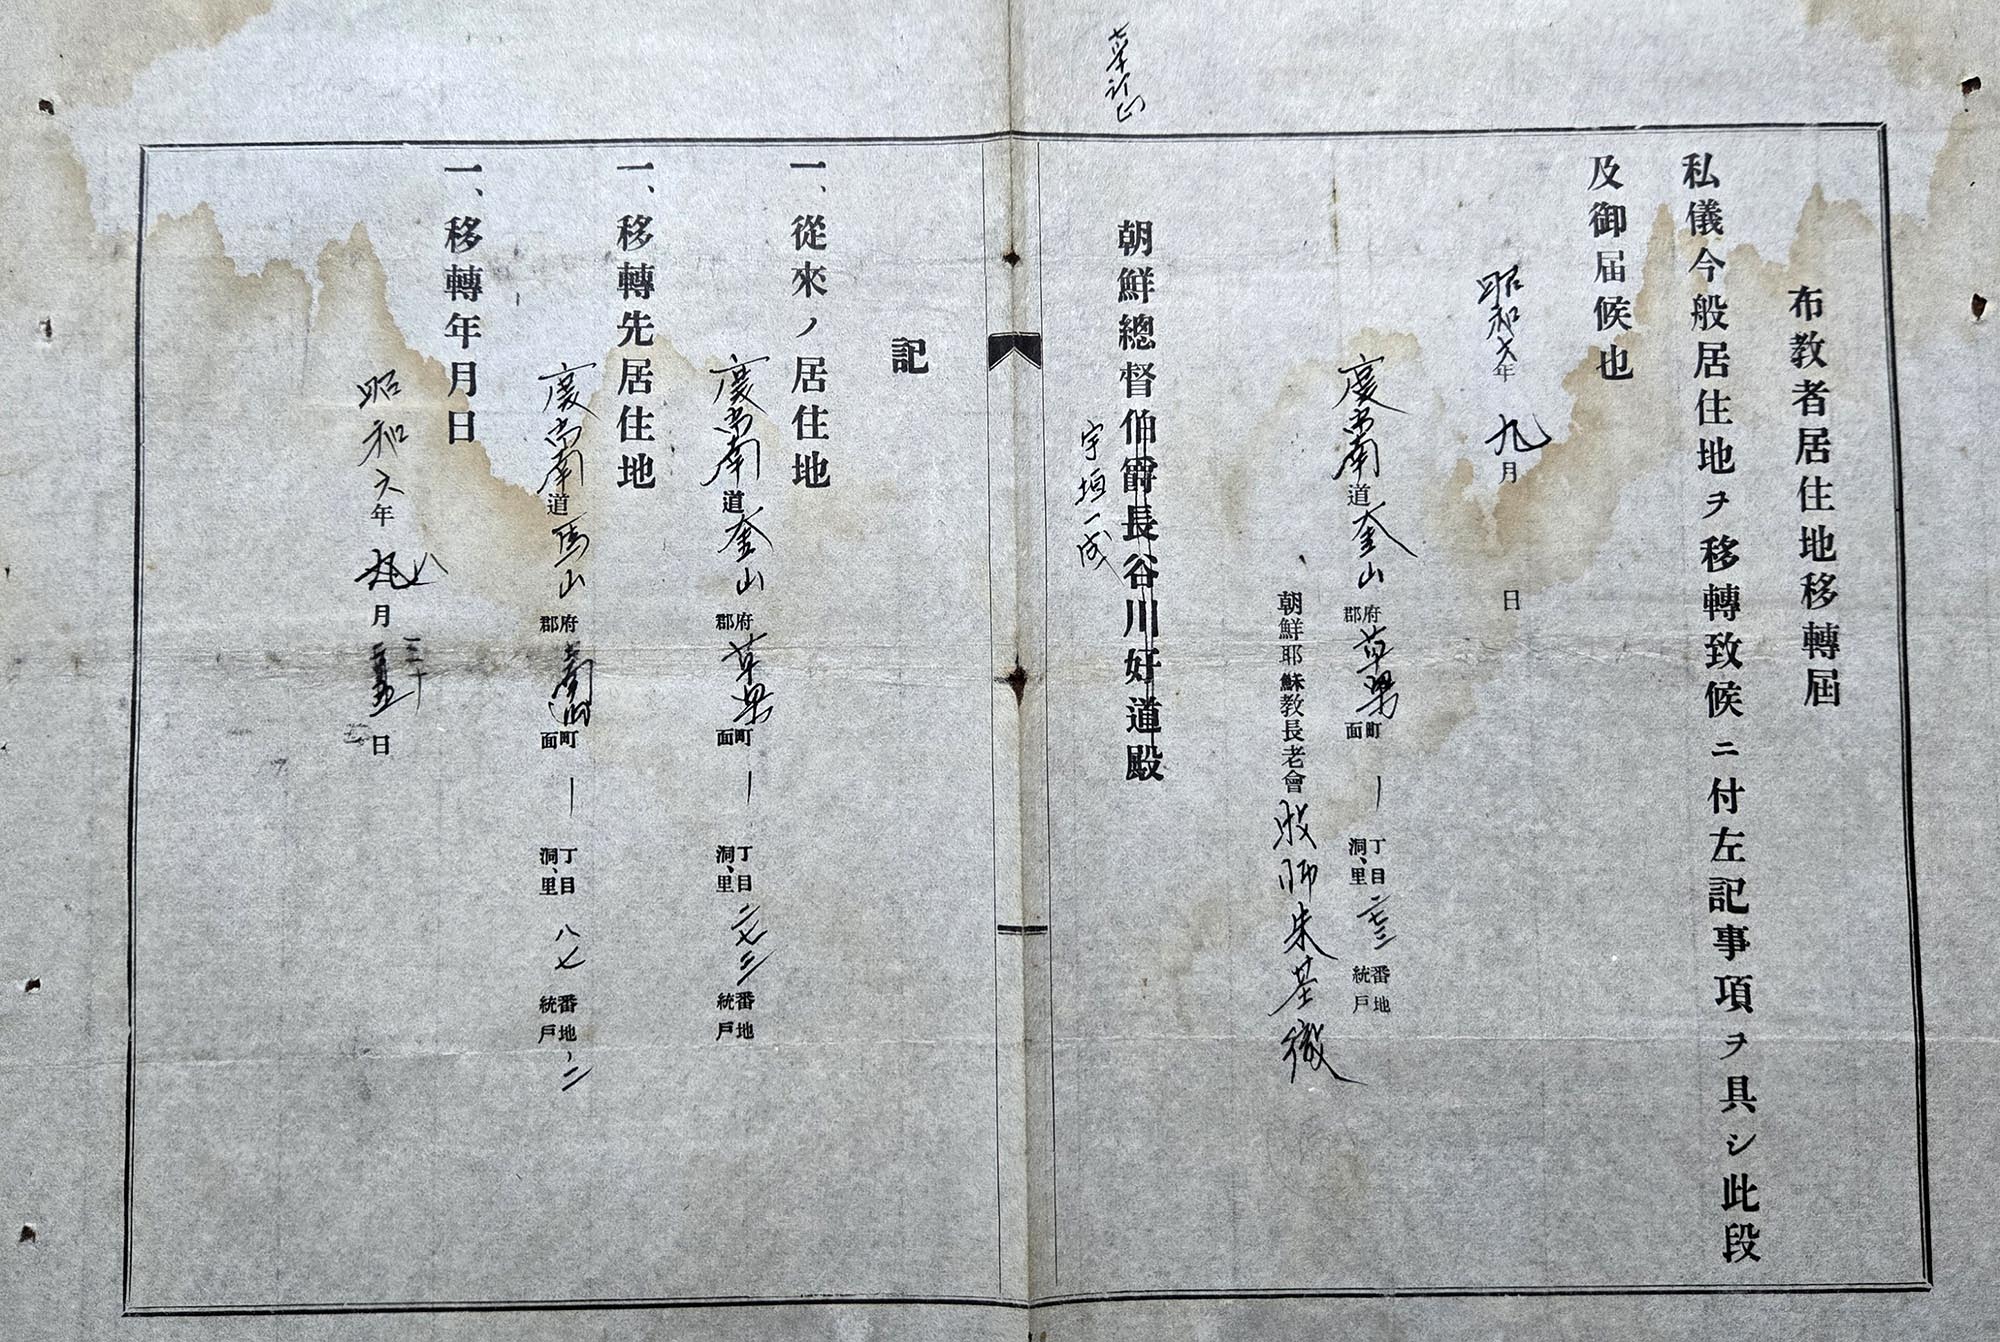 布教者居住地移轉屆
私儀今般居住地ヲ移轉致候ニ付左記事項ヲ具シ此段
及御届候也
昭和六年 九月 日
慶尚南道釜山府郡草梁町面 一丁目洞、里二七三番地統戶
朝鮮耶蘇教長老會 牧師朱基徹
朝鮮總督伯爵長谷川好道殿
宇垣一成
記
一、從來ノ居住地
慶尚南道釜山府郡草梁町面 一丁目洞、里二七三番地統戶
一、移轉先居住地
慶尚南道馬山府郡町面 一丁目洞、里八七番地統戶ノ二
一、移轉年月日
昭和六年 八月三十日